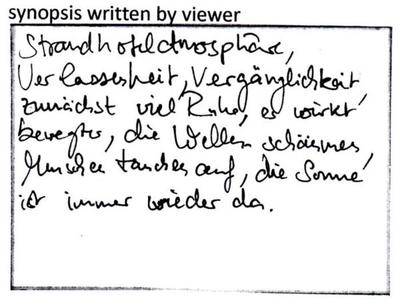 synopsis written by viewer
Strandhotelatmosphäre,
Verlassenheit, Vergänglichkeit,
zunächst viel Ruhe, es wirkt
bewegter, die Wellen schäumen,
Menschen tauchen auf, die Sonne
ist immer wieder da.